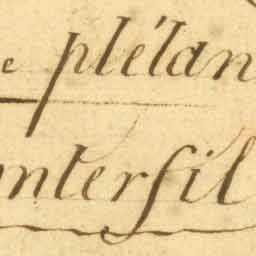 e plélan
onterfil